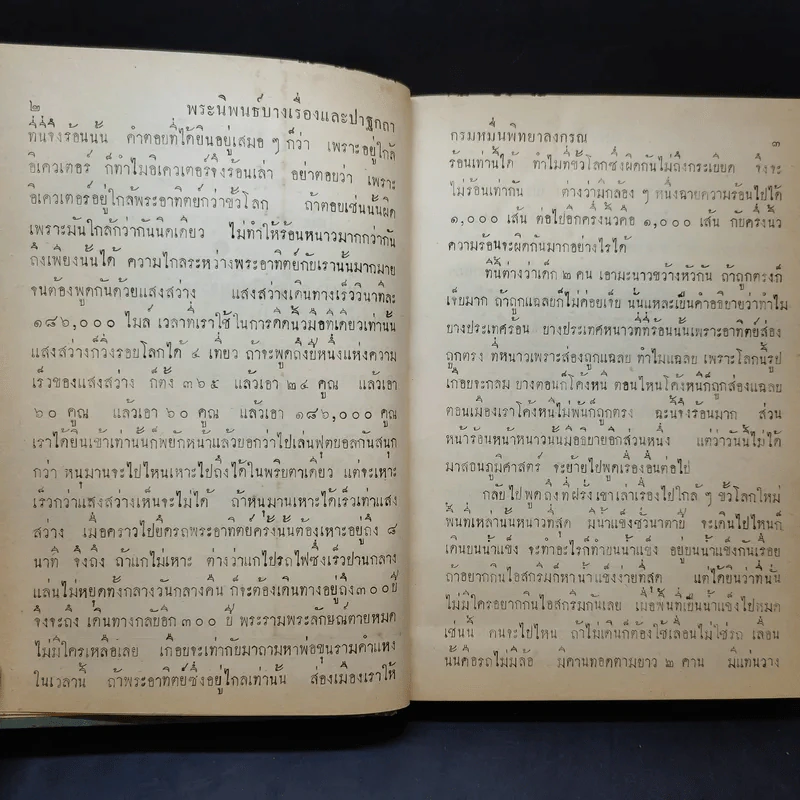 ๒ พระนิพนธ์บางเรื่องและปาฐกถา
ที่นี่จึงร้อนนั้น คำตอบที่ได้ยินอยู่เสมอ ๆ ก็ว่า เพราะอยู่ใกล้
อิเควเตอร์ ก็ทำไมอิเควเตอร์จึงร้อนเล่า อย่าตอบว่า เพราะ
อิเควเตอร์อยู่ใกล้พระอาทิตย์กว่าขั้วโลก ถ้าตอบเช่นนั้นผิด
เพราะมันใกล้กว่ากันนิดเดียว ไม่ทำให้ร้อนหนาวมากกว่ากัน
ถึงเพียงนั้นได้ ความไกลระหว่างพระอาทิตย์กับเรานั้นมากมาย
จนต้องพูดกันด้วยแสงสว่าง แสงสว่างเดินทางเร็ววินาทีละ
๑๘๖,๐๐๐ ไมล์ เวลาที่เราใช้ในการดีดนิ้วมือทีเดียวเท่านั้น
แสงสว่างก็วิ่งรอบโลกได้ ๔ เที่ยว ถ้าจะพูดถึงปีหนึ่งแห่งความ
เร็วของแสงสว่าง ก็ตั้ง ๓๖๕ แล้วเอา ๒๔ คูณ แล้วเอา
๖๐ คูณ แล้วเอา ๖๐ คูณ แล้วเอา ๑๘๖,๐๐๐ คูณ
เราได้ยินเข้าเท่านั้นก็พยักหน้าแล้วบอกว่าไปเล่นฟุตบอลกันสนุก
กว่า หนุมานจะไปไหนเหาะไปถึงได้ในพริบตาเดียว แต่จะเหาะ
เร็วกว่าแสงสว่างเห็นจะไม่ได้ ถ้าหนุมานเหาะได้เร็วเท่าแสง
สว่าง เมื่อคราวไปยึดรถพระอาทิตย์ครั้งนั้นต้องเหาะอยู่ถึง ๘
นาที จึงถึง ถ้าแกไม่เหาะ ต่างว่าแกไปรถไฟซึ่งเร็วปานกลาง
แล่นไม่หยุดทั้งกลางวันกลางคืน ก็จะต้องเดินทางอยู่ถึง๓๐๐ปี
จึงจะถึง เดินทางกลับอีก ๓๐๐ ปี พระรามพระลักษณ์ตายหมด
ไม่มีใครเหลือเลย เกือบจะเท่ากับมาถามหาพ่อขุนรามคำแหง
ในเวลานี้ ถ้าพระอาทิตย์ซึ่งอยู่ไกลเท่านั้น ส่องเมืองเราให้
กรมหมื่นพิทยาลงกรณ ๓
ร้อนเท่านี้ได้ ทำไมที่ขั้วโลกซึ่งผิดกันไม่ถึงกระเบียด จึงจะ
ไม่ร้อนเท่ากัน ต่างว่ามีกล้อง ๆ หนึ่งฉายความร้อนไปได้
๑,๐๐๐ เส้น ต่อไปอีกครึ่งนิ้วคือ ๑,๐๐๐ เส้น กับครึ่งนิ้ว
ความร้อนจะผิดกันมากอย่างไรได้
ทีนี้ต่างว่าเด็ก ๒ คน เอามะนาวขว้างหัวกัน ถ้าถูกตรงก็
เจ็บมาก ถ้าถูกแฉลบก็ไม่ค่อยเจ็บ นั่นแหละเป็นคำอธิบายว่าทำไม
บางประเทศร้อน บางประเทศหนาวที่ที่ร้อนนั้นเพราะอาทิตย์ส่อง
ถูกตรง ที่หนาวเพราะส่องถูกแฉลบ ทำไมแฉลบ เพราะโลกนี้รูป
เกือบจะกลม บางตอนก็โค้งหนี ตอนไหนโค้งหนีก็ถูกส่องแฉลบ
ตอนเมืองเราโค้งหนีไม่พ้นก็ถูกตรง ฉะนั้นจึงร้อนมาก ส่วน
หน้าร้อนหน้าหนาวนั้นมีอธิบายอีกส่วนหนึ่ง แต่ว่าวันนี้ไม่ได้
มาสอนภูมิศาสตร์ จะย้ายไปพูดเรื่องอื่นต่อไป
กลับไปพูดถึงที่ฝรั่งเขาเล่าเรื่องไปใกล้ ๆ ขั้วโลกใหม่
พื้นที่เหล่านั้นหนาวที่สุด มีน้ำแข็งชั่วนาตาปี จะเดินไปไหนก็
เดินบนน้ำแข็ง จะทำอะไรก็ทำบนน้ำแข็ง อยู่บนน้ำแข็งกันเรื่อย
ถ้าอยากกินไอสกริมก็หาน้ำแข็งง่ายที่สุด แต่ได้ยินว่าที่นั่น
ไม่มีใครอยากกินไอสกริมกันเลย เมื่อพื้นที่เป็นน้ำแข็งไปหมด
เช่นนี้ คนจะไปไหน ถ้าไม่เดินก็ต้องใช้เลื่อนไม่ใช่รถ เลื่อน
นั้นคือรถไม่มีล้อ มีคานทอดตามยาว ๒ คาน มีแท่นวาง